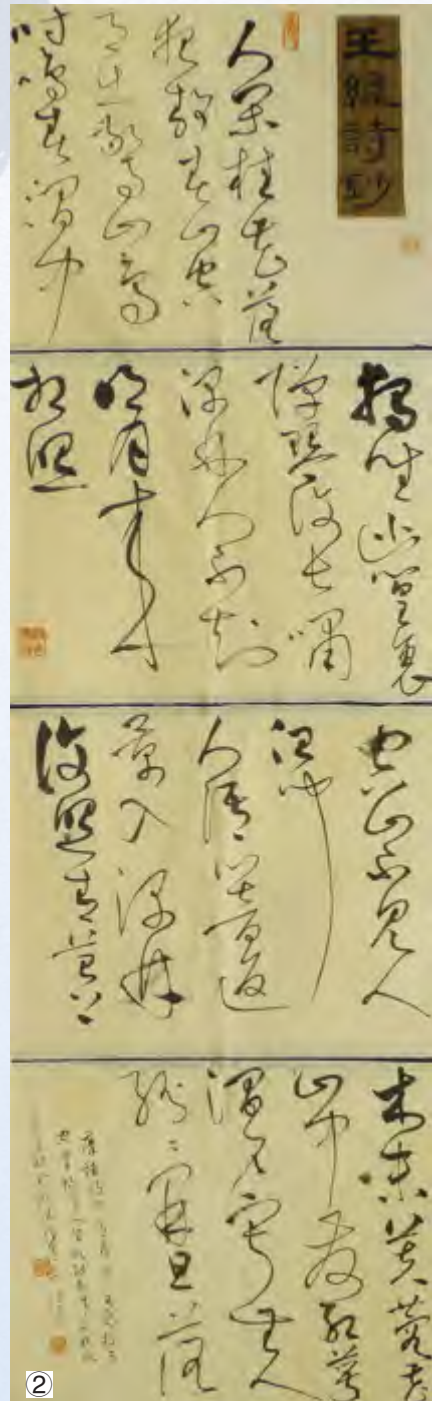 王維詩鈔
人閑桂花落
夜靜春山空
月出驚山鳥
時鳴春澗中
獨坐幽篁裏
彈琴復長嘯
深林人不知
明月來
相照
空山不見人
但聞
人語響返
景入深林
復照青苔上
木末芙蓉花
山中發紅萼
澗戶寂無人
紛〻開且落
②